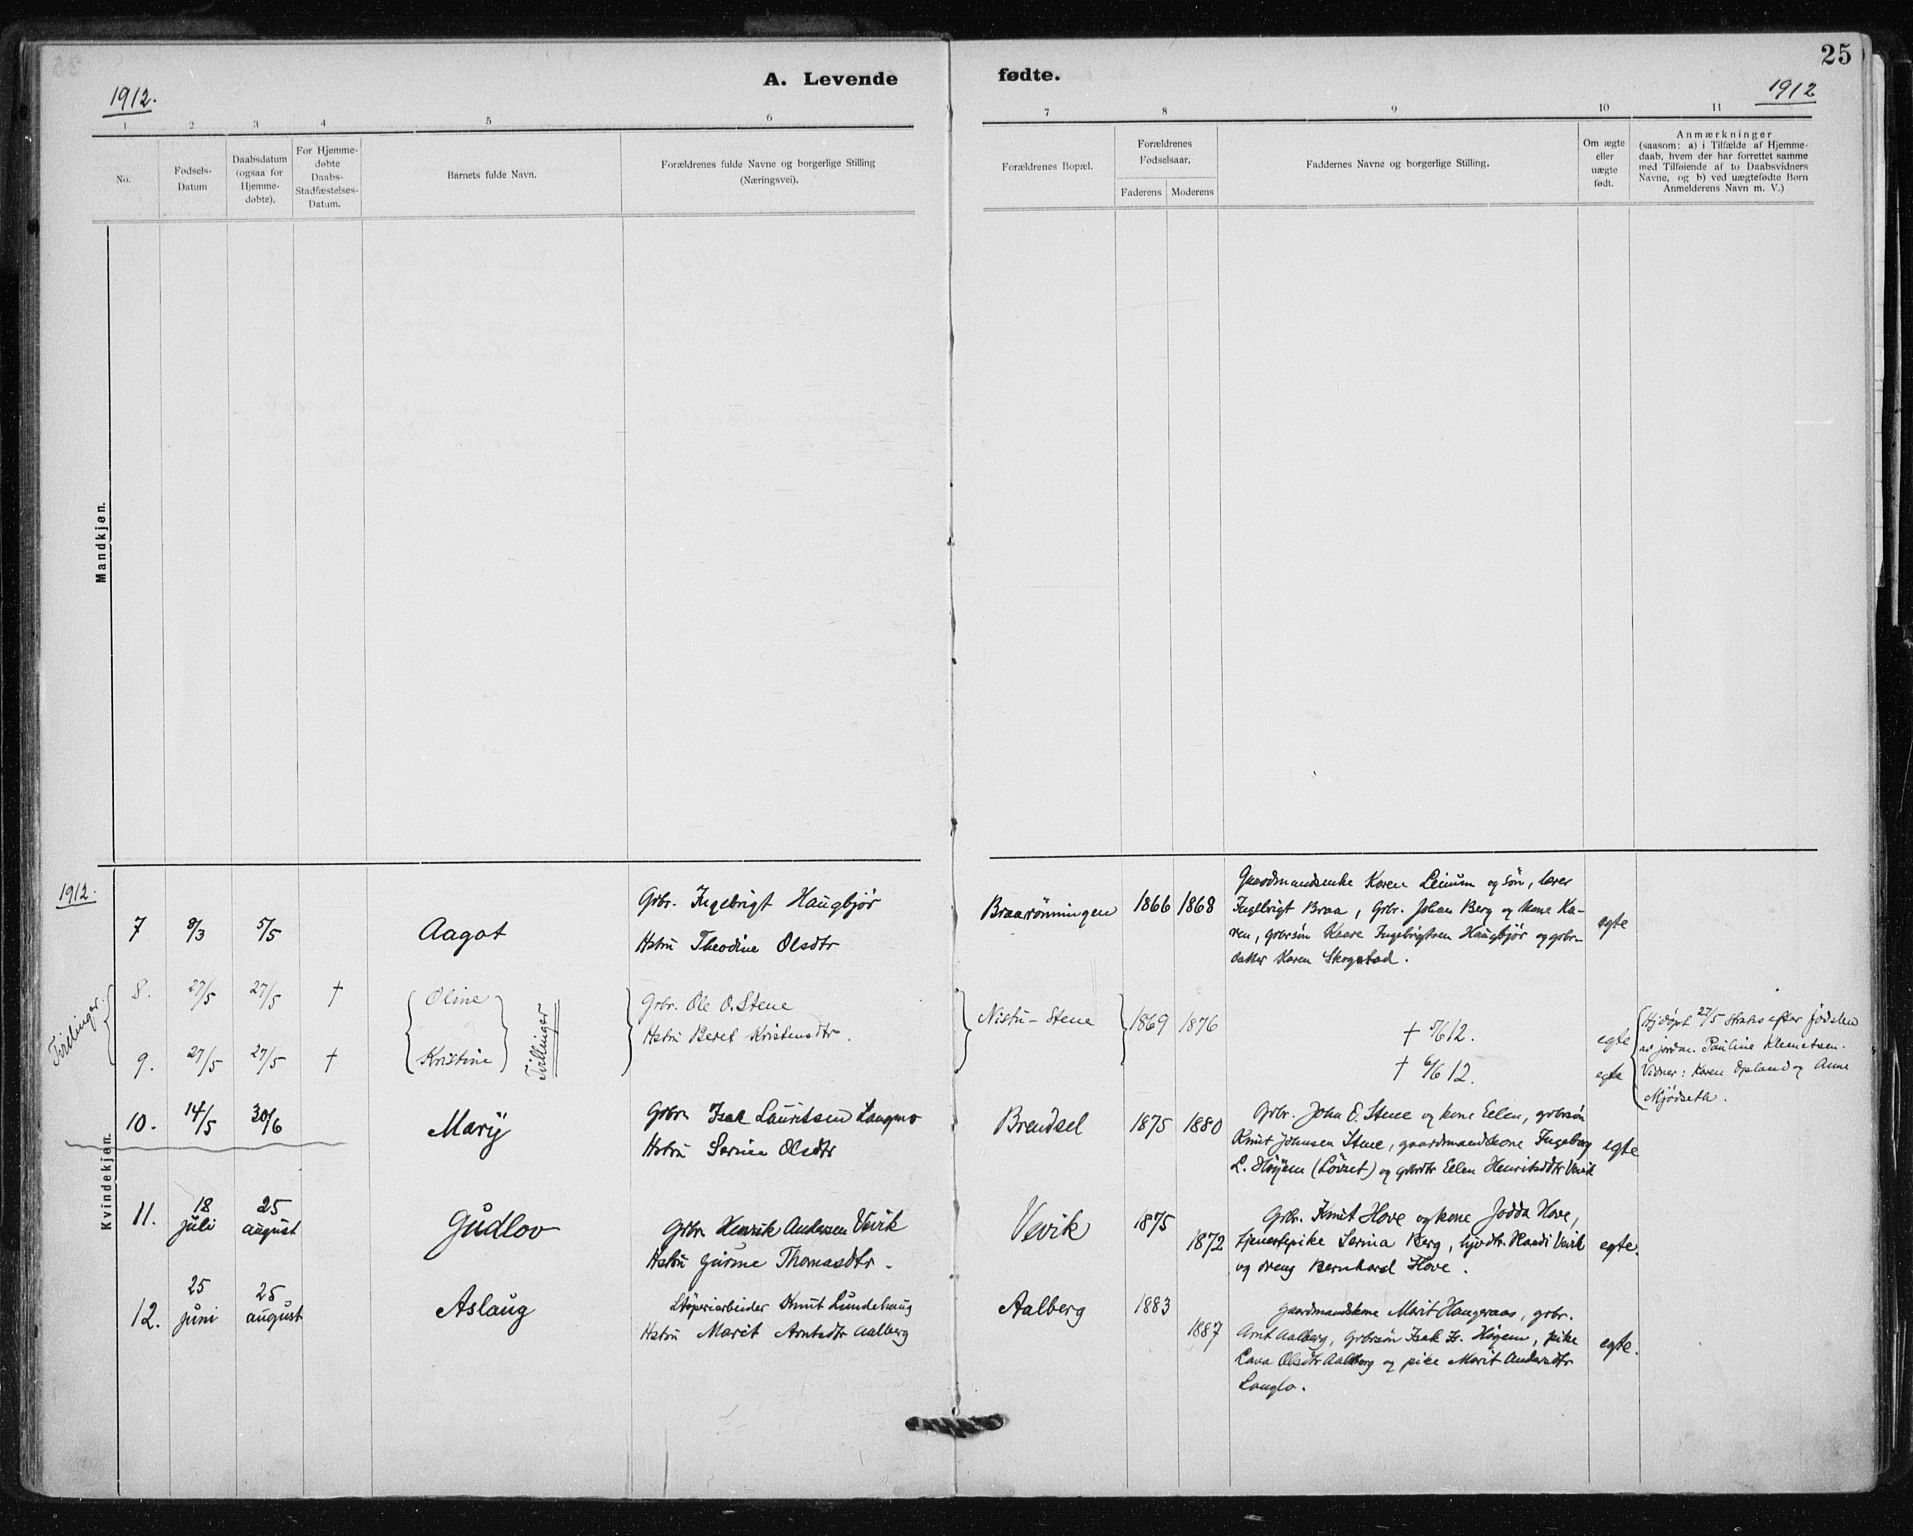 25
A. Levende fødte.
1912.
1912
1 2 3 4 5 6 7 8 9 10 11
No.
Fødsels-
Datum
Daabsdatum
(ogsaa for
Hjemme-
døbte).
For Hjemme-
døbte
Daabs-
Stadfæstelses-
Datum.
Barnets fulde Navn.
Forældrenes fulde Navne og borgerlige Stilling
(Næringsvei).
Forældrenes Bopæl.
Forældrenes
Fødselsaar.
Faderens Moderens
Faddernes Navne og borgerlige Stilling.
Om ægte
eller
uægte
født.
Anmærkninger
(saasom: a) i Tilfælde af Hjemme-
daab, hvem der har forrettet samme
med Tilføiende af to Daabsvidners
Navne, og b) ved uægtefødte Børn
Anmelderens Navn m. V.)
Mandkjøn.
Kvindekjøn.
1912.
7 8/3 5/5 Aagot
Grbr. Ingebrigt Haugbjør
Hstru Theodine Olsdtr
Braarönningen 1866 1868
Gaardmandsenke Karen Leinum og søn, lærer
Ingebrigt Braa, Grbr. Johan Berg og kone Ka-
ren, grbrsøn Kaare Ingebrigtsen Haugbjør og grbr-
datter Karen Skogstad.
egte
Tvillinger
8. 27/5 27/5 † Oline
9. 27/5 27/5 † Kristine
Tvillinger
Grbr. Ole O. Stene
Hstru Beret Kristensdtr.
Nistu-Stene 1869 1876
† 5/6 12.
† 6/6 12.
egte
egte
Hjdöpt 27/5 straks efter fødselen
av jordm. Pauline Klemetsen.
Vidner: Karen Opland og Anne
Mjödseth.
10. 14/5 30/6 Mary
Grbr. Isak Lauritsen Langmo
Hstru Serine Olsdtr
Brendsel 1875 1880
Grbr. John E. Stene og kone Eelen, grbrsøn
Knut Johnsen Stene, gaardmandskone Ingeborg
L. Høyem (Lövset) og grbrdtr Eelen Henriksdtr Vevik
egte
11. 18 juli 25 august Gudlov
Grbr. Henrik Andersen Vevik
Hstru Gurine Thomasdtr.
Vevik 1875 1872
Grbr. Knut Hove og kone Jodda Hove,
tjenestepike Serina Berg, Randi Vevik
og dreng Bernhard Hove.
egte.
12. 25 juni 25 august Aslaug
Støperiarbeider Knut Lundehaug
Hstru Marit Arntsdtr Aalberg
Aalberg 1883 1887
Gaardmandskone Marit Haugeraas, grbr.
Arnt Aalberg, Grbrsøn Isak Høyem, pike
Lava Olsdtr Aalberg og pike Marit Andersdtr
Langlo.
egte.